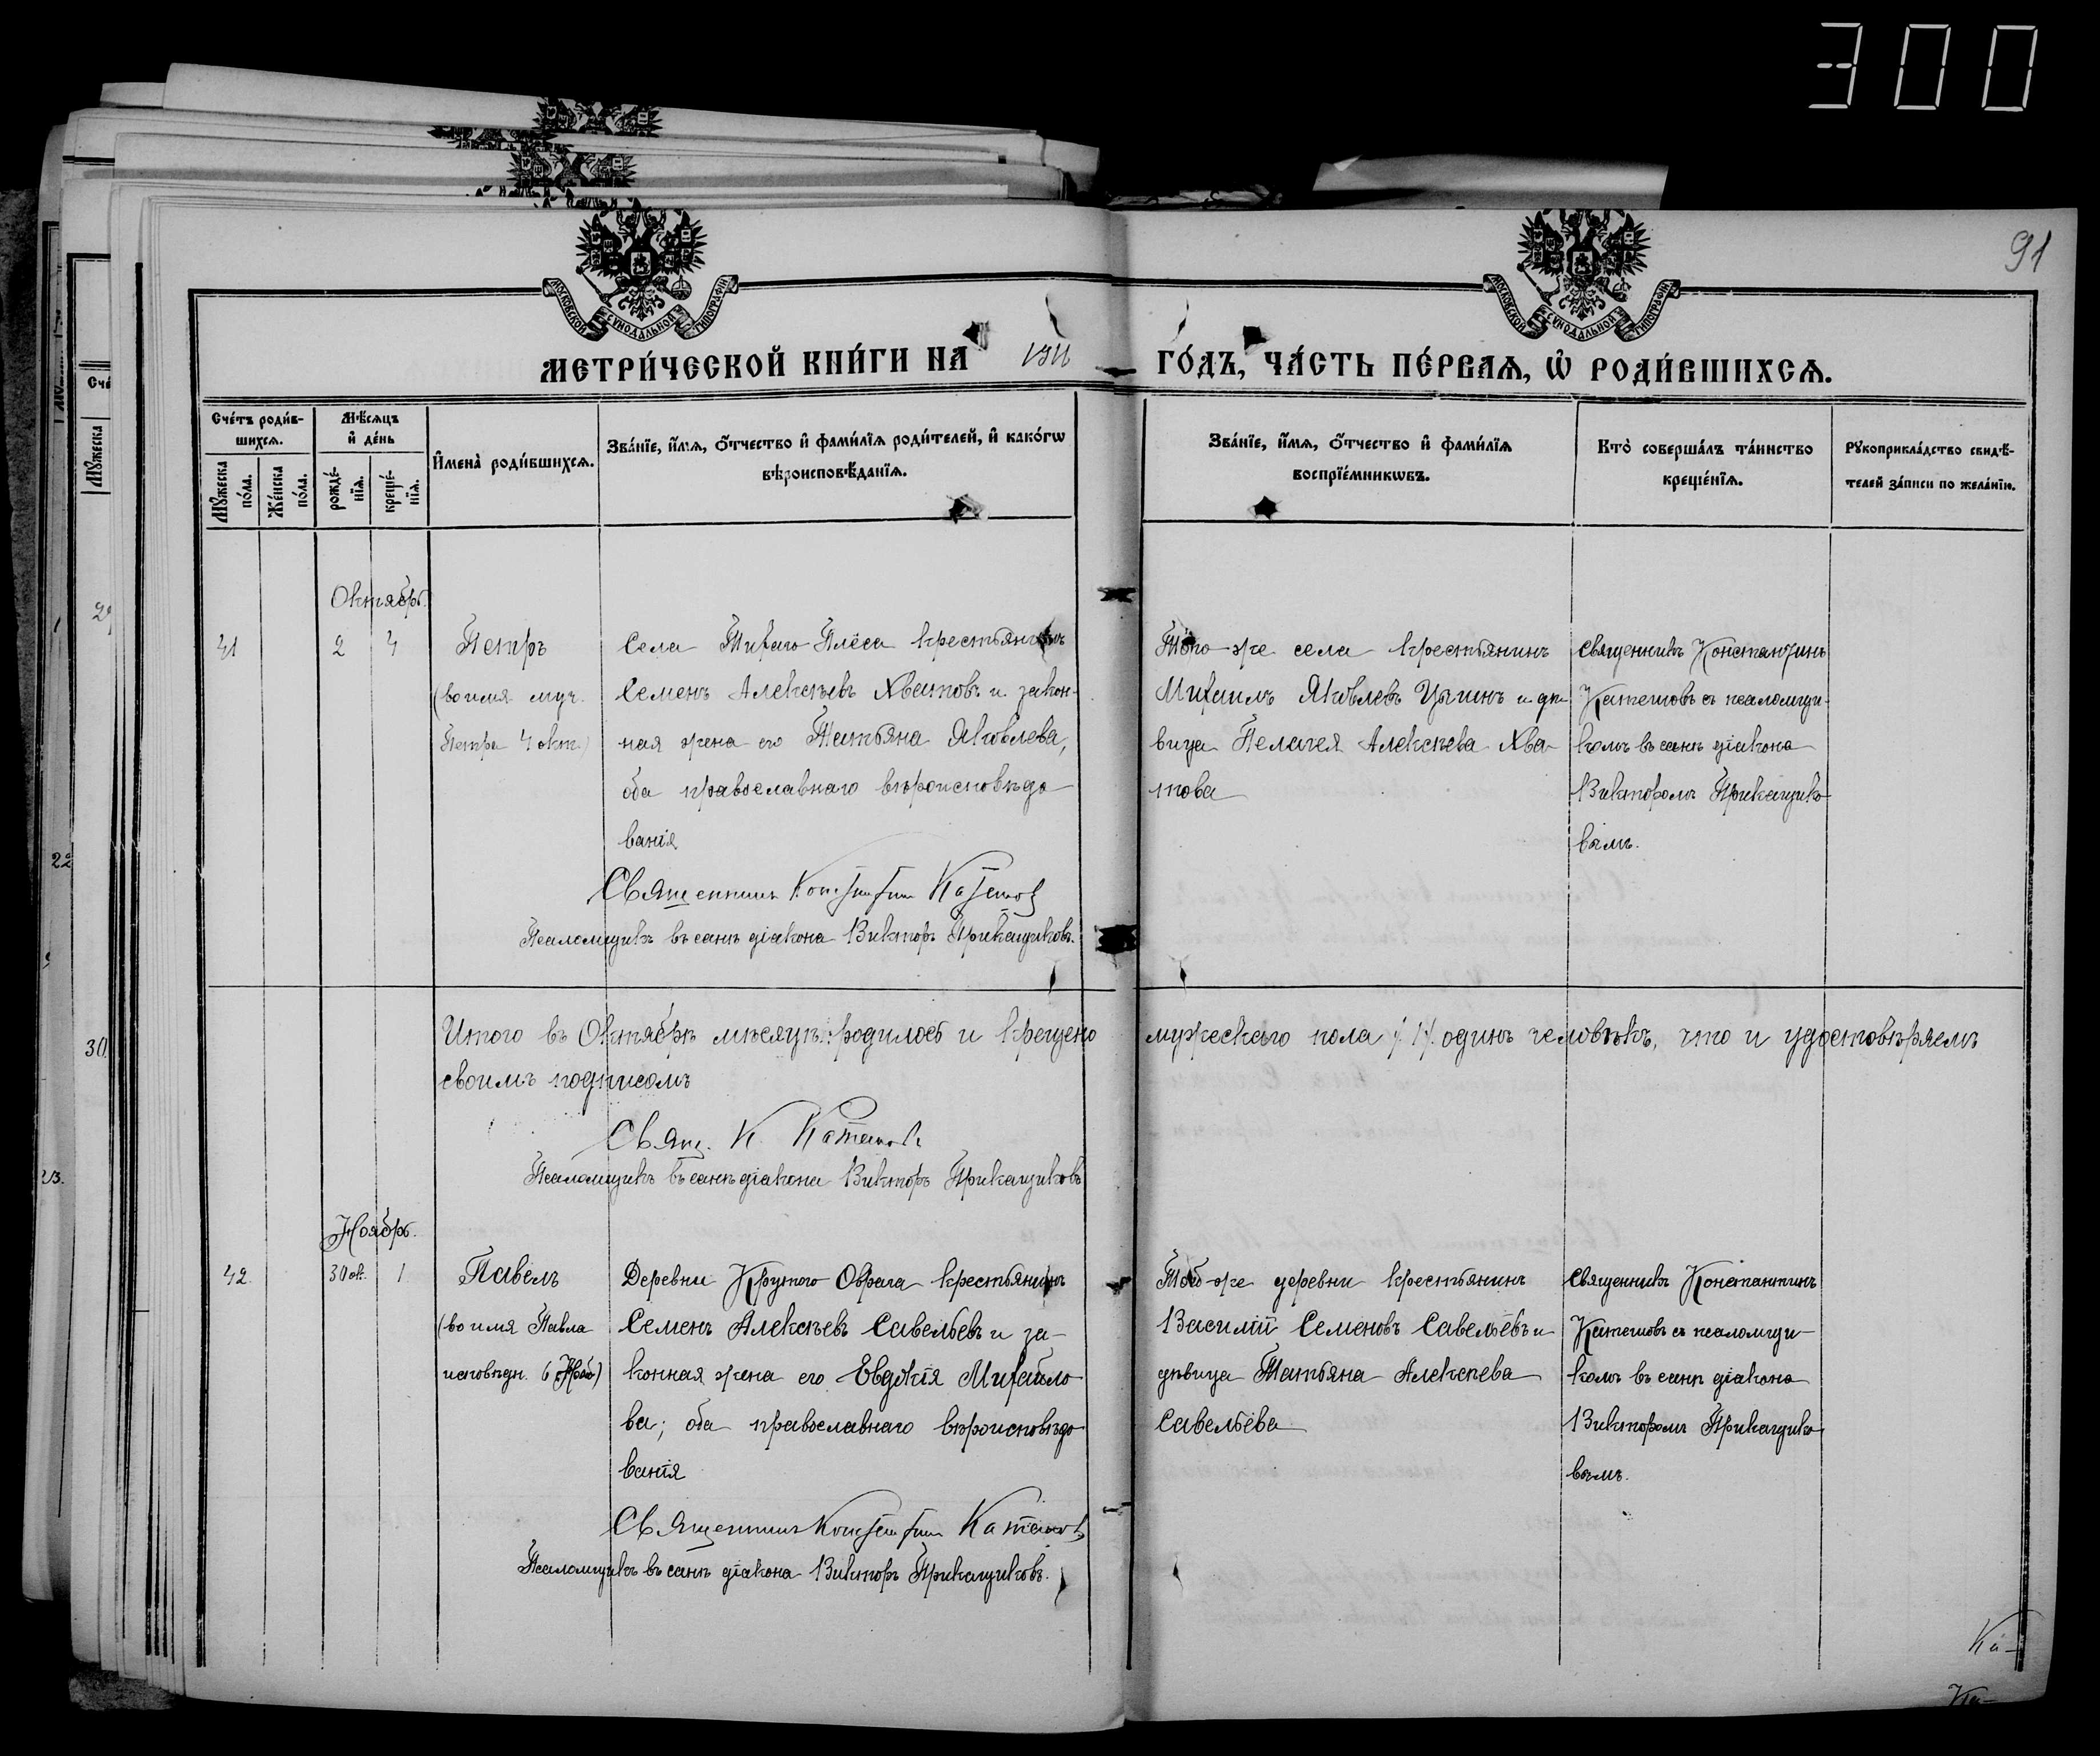 300
91
МОСКОВСКОЙ СѴНОДАЛЬНОЙ ТИПОГРАФІИ
МОСКОВСКОЙ СѴНОДАЛЬНОЙ ТИПОГРАФІИ
МЕТРИ́ЧЕСКОЙ КНИ́ГИ НА 1911 ГО́ДЪ, ЧА́СТЬ ПЕ́РВАѦ, Ѽ РОДИ́ВШИХСѦ.
Сче́тъ роди́в-
шихсѧ.
Мꙋ́жеска по́ла.
Же́нска по́ла.
Мѣ́сѧцъ
и҆ де́нь
рожде́-
нїѧ.
креще́-
нїѧ.
И҆мена̀ роди́вшихсѧ.
Зва́нїе, и҆́мѧ, ѻ҆́тчество и҆ фами́лїѧ роди́телей, и҆ како́гѡ
вѣроисповѣ́данїѧ.
Зва́нїе, и҆́мѧ, ѻ҆́тчество и҆ фами́лїѧ
воспрїе́мникѡвъ.
Кто̀ соверша́лъ та́инство
креще́нїѧ.
Рꙋкоприкла́дство свидѣ́-
телей за́писи по жела́нїю.
Октябрь.
41 2 4
Петръ
(во имя муч.
Петра 4 окт.)
Села Тихаго Плёса крестьянинъ
Семенъ Алексѣевъ Хватовъ и закон-
ная жена его Татьяна Яковлева,
оба православнаго вѣроисповѣдо-
ванія
Священникъ Константин Катетов
Псаломщикъ въ санѣ діакона Викторъ Прикащиковъ.
Того-же села крестьянинъ
Михаилъ Яковлевъ и дѣ-
вица Пелагея Алексѣева Хва-
това
Священникъ Константинъ
Катетовъ съ псаломщи-
комъ въ санѣ діакона
Викторомъ Прикащико-
вымъ.
Итого въ Октябрѣ мѣсяцѣ: родилось и крещено мужескаго пола /1/ одинъ человѣкъ, что и удостовѣряемъ
своимъ подписомъ
Свящ. К. Катетовъ
Псаломщикъ въ санѣ діакона Викторъ Прикащиковъ
Ноябрь.
42. 30 ок. 1
Павелъ
(во имя Павла
исповѣдн. 6 Нояб)
Деревни Крутого Оврага крестьянинъ
Семенъ Алексѣевъ Савельевъ и за-
конная жена его Евдокія Михайло-
ва; оба православнаго вѣроисповѣдо-
ванія
Священникъ Константин Катетовъ
Псаломщикъ въ санѣ діакона Викторъ Прикащиковъ.
Той-же деревни крестьянинъ
Василій Семеновъ Савельевъ и
дѣвица Татьяна Алексѣева
Савельева
Священникъ Константинъ
Катетовъ съ псаломщи-
комъ въ санѣ діакона
Викторомъ Прикащико-
вымъ.
Ка-
Ка-
Сче
Мꙋ́жеска
22
30
23.